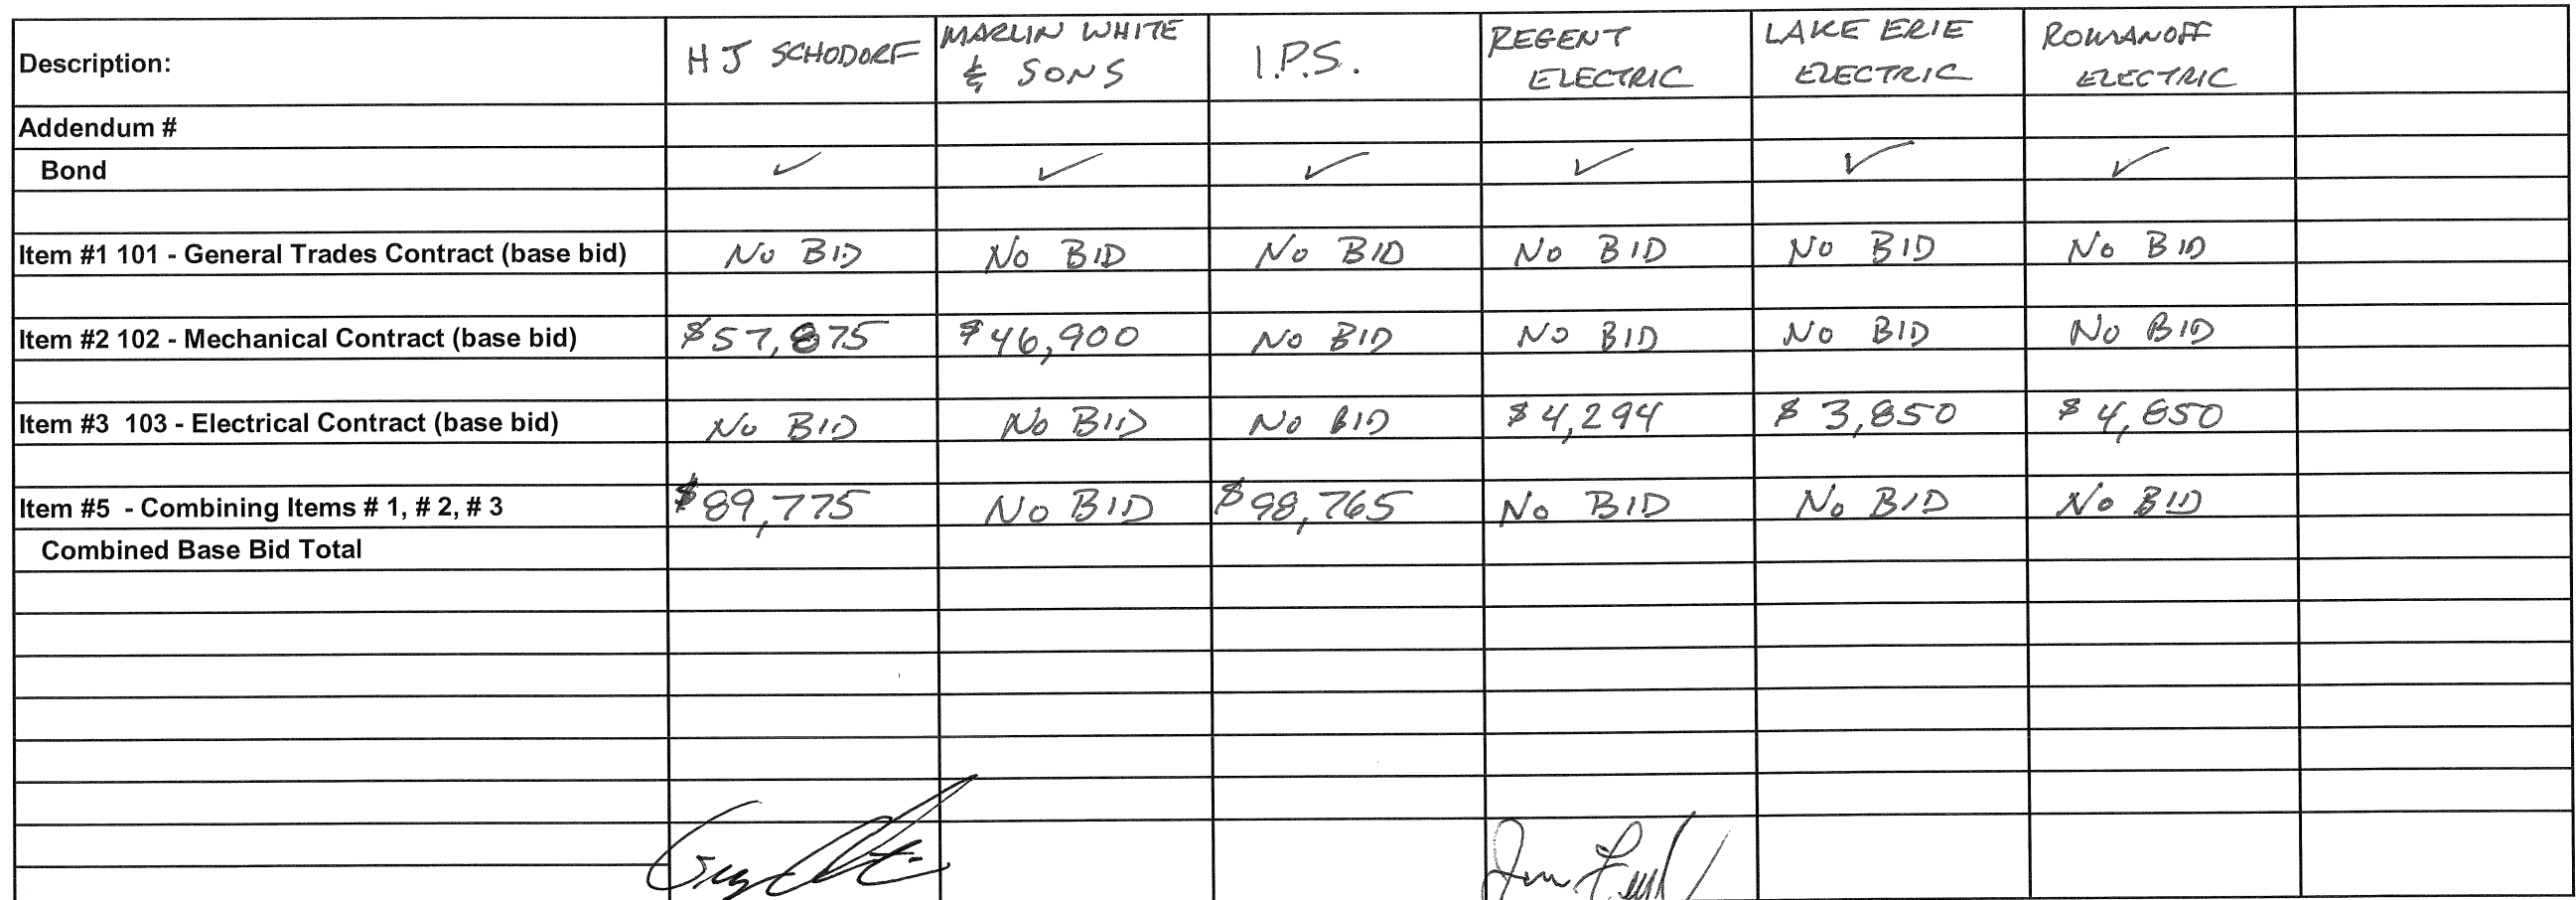 Description: H J SCHODORF MARLIN WHITE & SONS I.P.S. REGENT ELECTRIC LAKE ERIE ELECTRIC ROMANOFF ELECTRIC
Addendum #
Bond ✓ ✓ ✓ ✓ ✓ ✓
Item #1 101 - General Trades Contract (base bid) NO BID NO BID NO BID NO BID NO BID NO BID
Item #2 102 - Mechanical Contract (base bid) $57,875 $46,900 NO BID NO BID NO BID NO BID
Item #3 103 - Electrical Contract (base bid) NO BID NO BID NO BID $4,294 $3,850 $4,850
Item #5 - Combining Items # 1, # 2, # 3 $89,775 NO BID $98,765 NO BID NO BID NO BID
Combined Base Bid Total